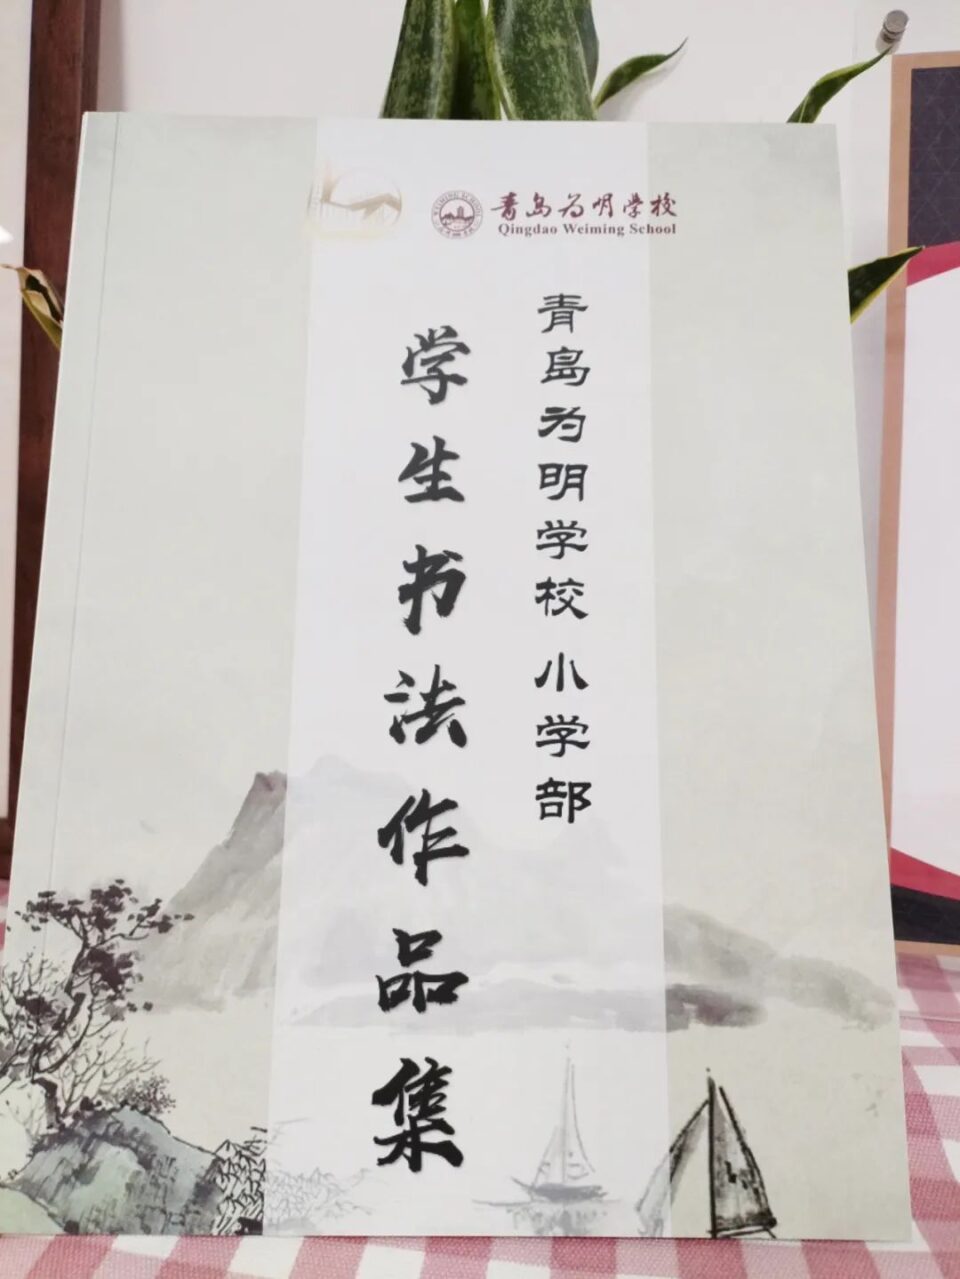 青岛为明学校
Qingdao Weiming School
青岛为明学校 小学部
学生书法作品集